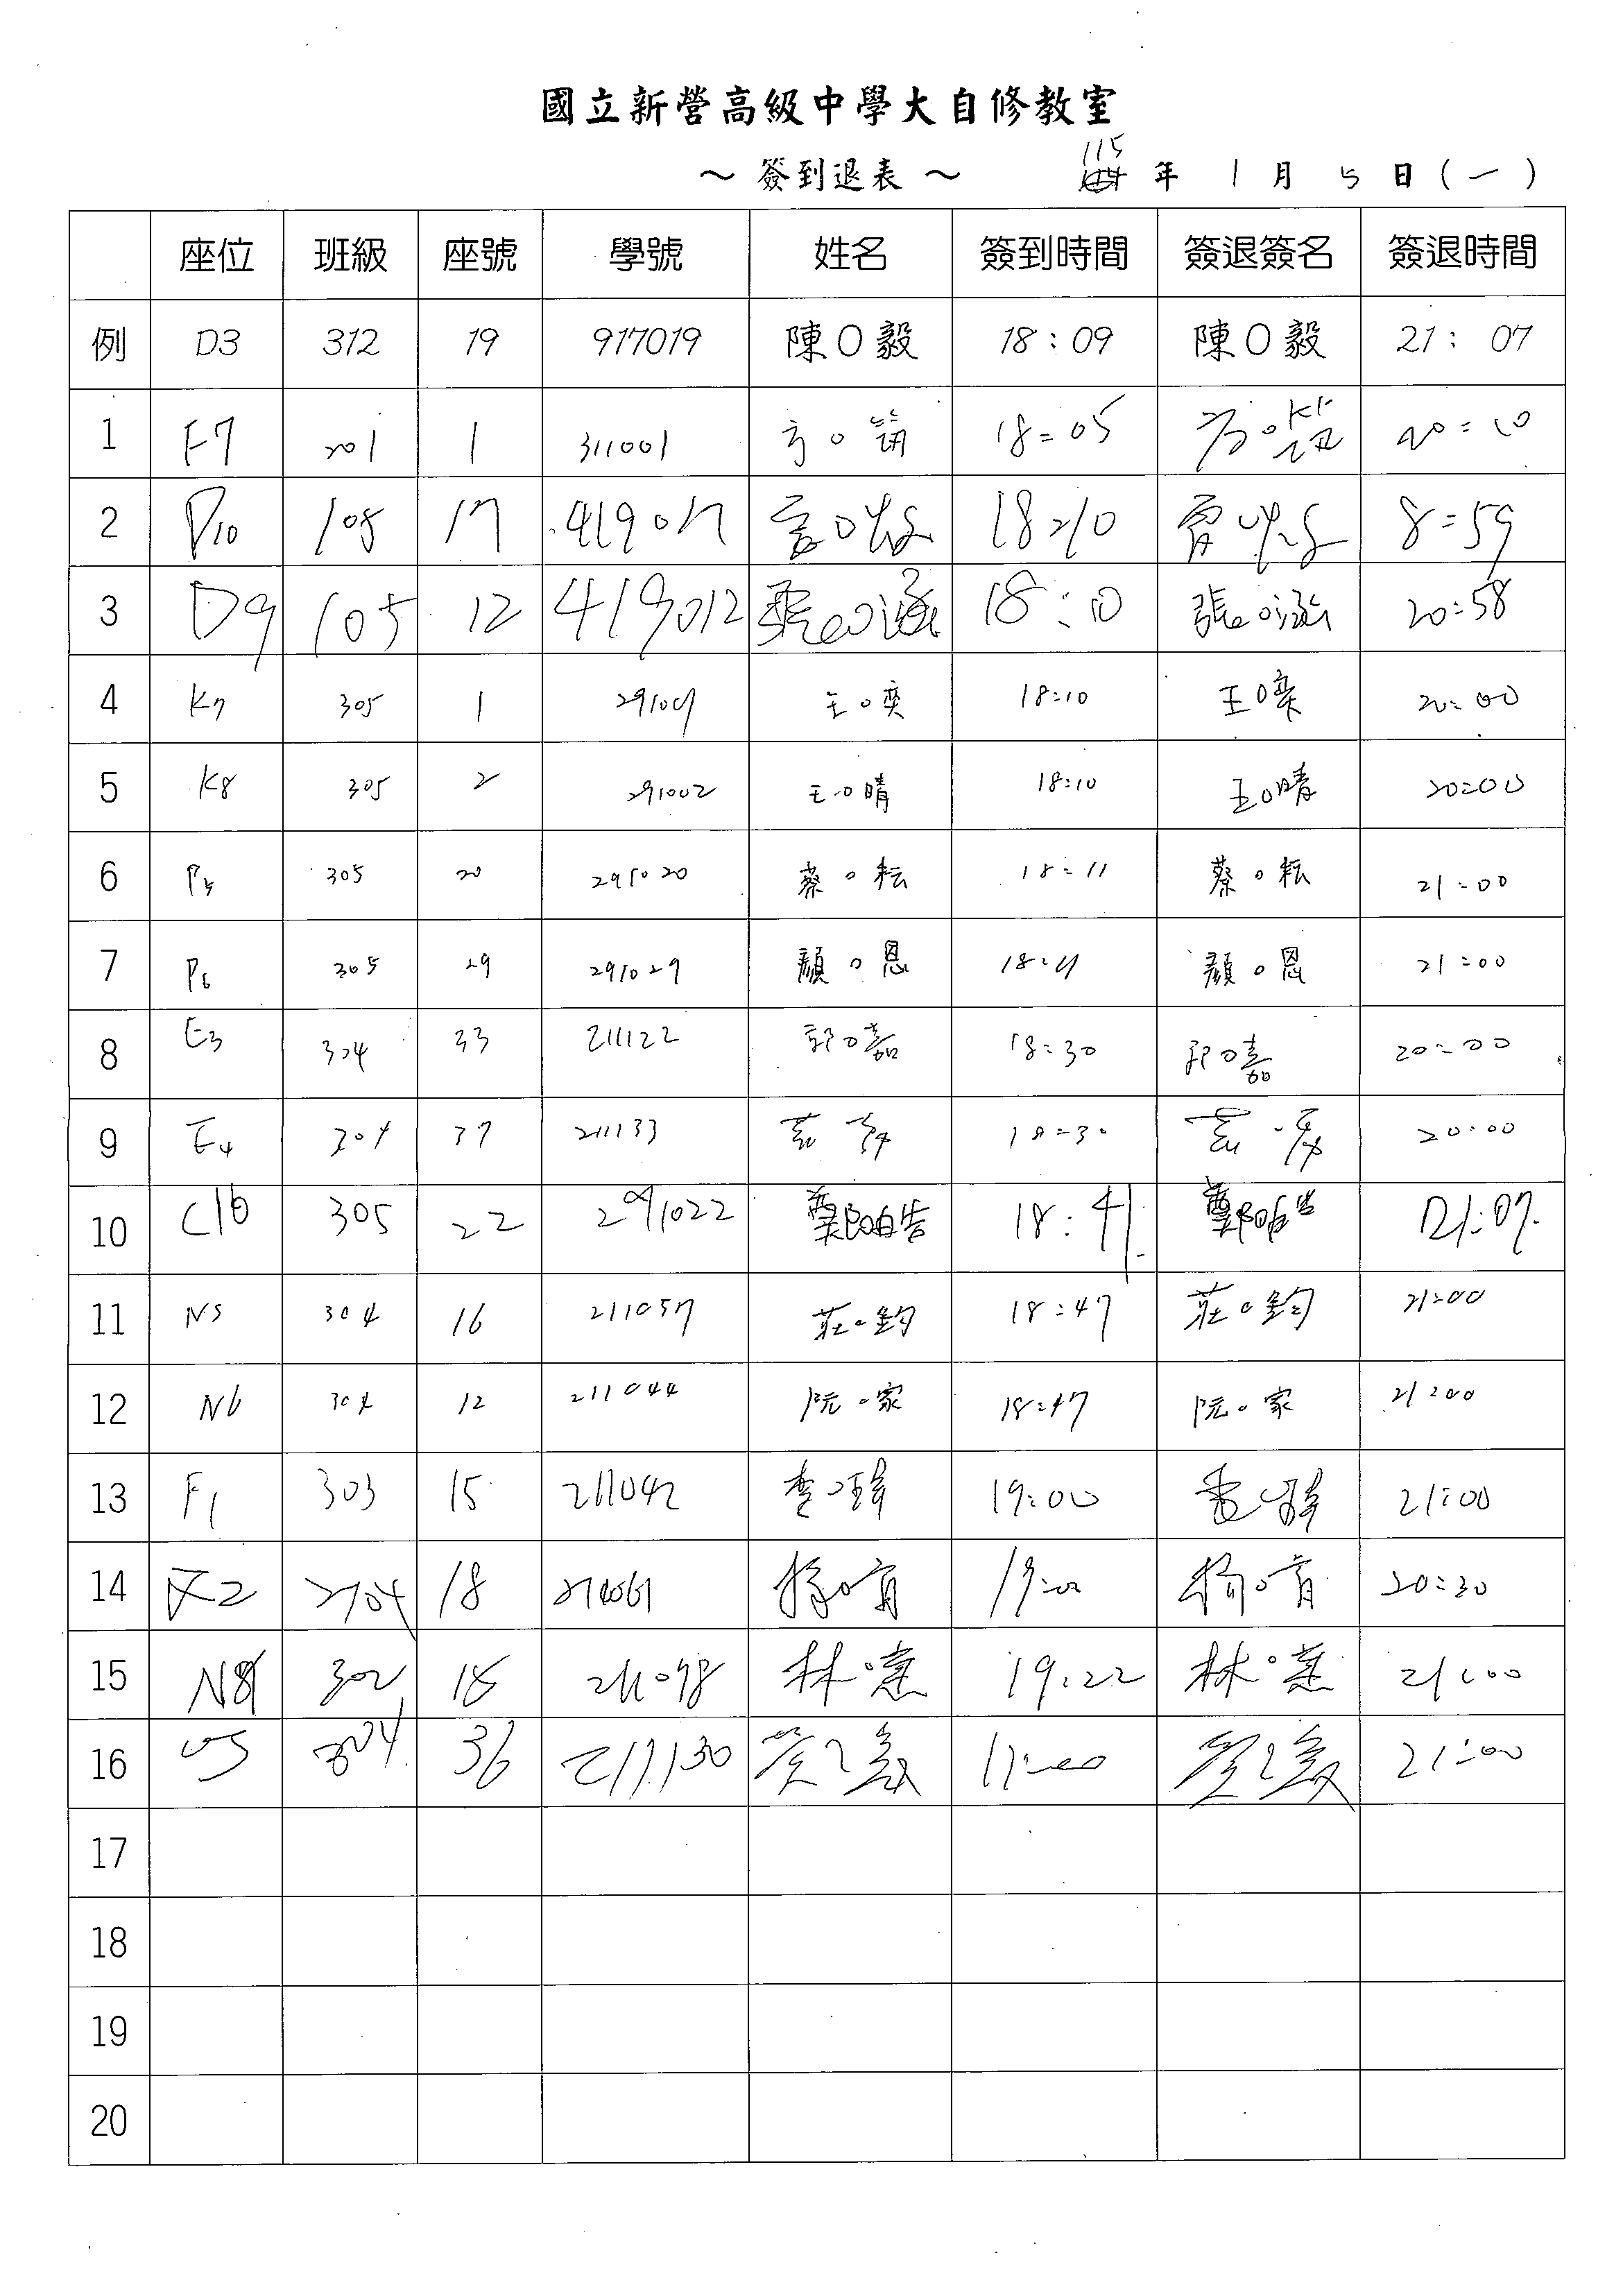 國立新營高級中學大自修教室
～簽到退表～ 115 年 1 月 5 日(一)
座位 班級 座號 學號 姓名 簽到時間 簽退簽名 簽退時間
例 D3 312 19 917019 陳○毅 18:09 陳○毅 21:07
1 F7 201 1 311001 方○筑 18:05 方○筑 20:10
2 D10 108 17 419017 18:10 8:59
3 D9 105 12 419012 張○涵 18:10 張○涵 20:58
4 K7 305 1 291001 王○奕 18:10 王○奕 20:00
5 K8 305 2 291002 王○晴 18:10 王○晴 20:00
6 P5 305 20 291020 蔡○耘 18:11 蔡○耘 21:00
7 P6 305 29 291029 顏○恩 18:11 顏○恩 21:00
8 E3 304 33 211122 郭○嘉 18:30 郭○嘉 20:00
9 E4 304 37 211133 18:30 20:00
10 C10 305 22 291022 鄭○皓 18:41 鄭○皓 21:07
11 N5 304 16 211057 莊○鈞 18:47 莊○鈞 21:00
12 N6 304 12 211044 阮○家 18:47 阮○家 21:00
13 F1 303 15 211042 李○瑋 19:00 李○瑋 21:00
14 F2 304 18 211061 楊○育 19:00 楊○育 20:30
15 N8 302 18 211098 林○蕙 19:22 林○蕙 21:00
16 304 36 211130 21:00
17
18
19
20